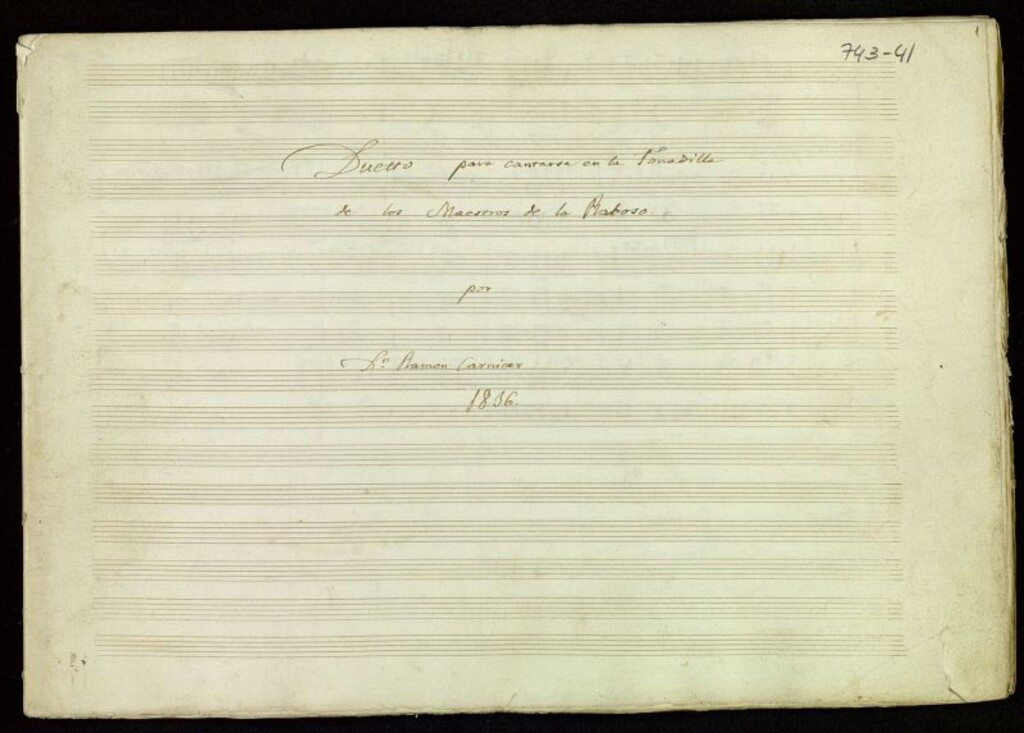 1
743-41
Duetto para cantarse en la Tonadilla
de los Maestros de la Raboso.
por
Dn. Ramon Carnicer
1836.